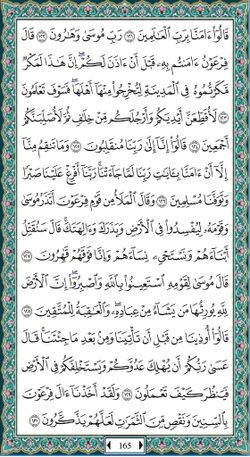 قَالُوٓا۟ ءَامَنَّا بِرَبِّ ٱلْعَـٰلَمِينَ ۝١٢١ رَبِّ مُوسَىٰ وَهَـٰرُونَ ۝١٢٢ قَالَ
فِرْعَوْنُ ءَامَنتُم بِهِۦ قَبْلَ أَنْ ءَاذَنَ لَكُمْ ۖ إِنَّ هَـٰذَا لَمَكْرٌ
مَّكَرْتُمُوهُ فِى ٱلْمَدِينَةِ لِتُخْرِجُوا۟ مِنْهَآ أَهْلَهَا ۖ فَسَوْفَ تَعْلَمُونَ
۝١٢٣ لَأُقَطِّعَنَّ أَيْدِيَكُمْ وَأَرْجُلَكُم مِّنْ خِلَـٰفٍ ثُمَّ لَأُصَلِّبَنَّكُمْ
أَجْمَعِينَ ۝١٢٤ قَالُوٓا۟ إِنَّآ إِلَىٰ رَبِّنَا مُنقَلِبُونَ ۝١٢٥ وَمَا تَنقِمُ مِنَّآ
إِلَّآ أَنْ ءَامَنَّا بِـَٔايَـٰتِ رَبِّنَا لَمَّا جَآءَتْنَا ۚ رَبَّنَآ أَفْرِغْ عَلَيْنَا صَبْرًا
وَتَوَفَّنَا مُسْلِمِينَ ۝١٢٦ وَقَالَ ٱلْمَلَأُ مِن قَوْمِ فِرْعَوْنَ أَتَذَرُ مُوسَىٰ
وَقَوْمَهُۥ لِيُفْسِدُوا۟ فِى ٱلْأَرْضِ وَيَذَرَكَ وَءَالِهَتَكَ ۚ قَالَ سَنُقَتِّلُ
أَبْنَآءَهُمْ وَنَسْتَحْىِۦ نِسَآءَهُمْ وَإِنَّا فَوْقَهُمْ قَـٰهِرُونَ ۝١٢٧
قَالَ مُوسَىٰ لِقَوْمِهِ ٱسْتَعِينُوا۟ بِٱللَّهِ وَٱصْبِرُوٓا۟ ۖ إِنَّ ٱلْأَرْضَ
لِلَّهِ يُورِثُهَا مَن يَشَآءُ مِنْ عِبَادِهِۦ ۖ وَٱلْعَـٰقِبَةُ لِلْمُتَّقِينَ ۝١٢٨
قَالُوٓا۟ أُوذِينَا مِن قَبْلِ أَن تَأْتِيَنَا وَمِنۢ بَعْدِ مَا جِئْتَنَا ۚ قَالَ
عَسَىٰ رَبُّكُمْ أَن يُهْلِكَ عَدُوَّكُمْ وَيَسْتَخْلِفَكُمْ فِى ٱلْأَرْضِ
فَيَنظُرَ كَيْفَ تَعْمَلُونَ ۝١٢٩ وَلَقَدْ أَخَذْنَآ ءَالَ فِرْعَوْنَ
بِٱلسِّنِينَ وَنَقْصٍ مِّنَ ٱلثَّمَرَٰتِ لَعَلَّهُمْ يَذَّكَّرُونَ ۝١٣٠
165